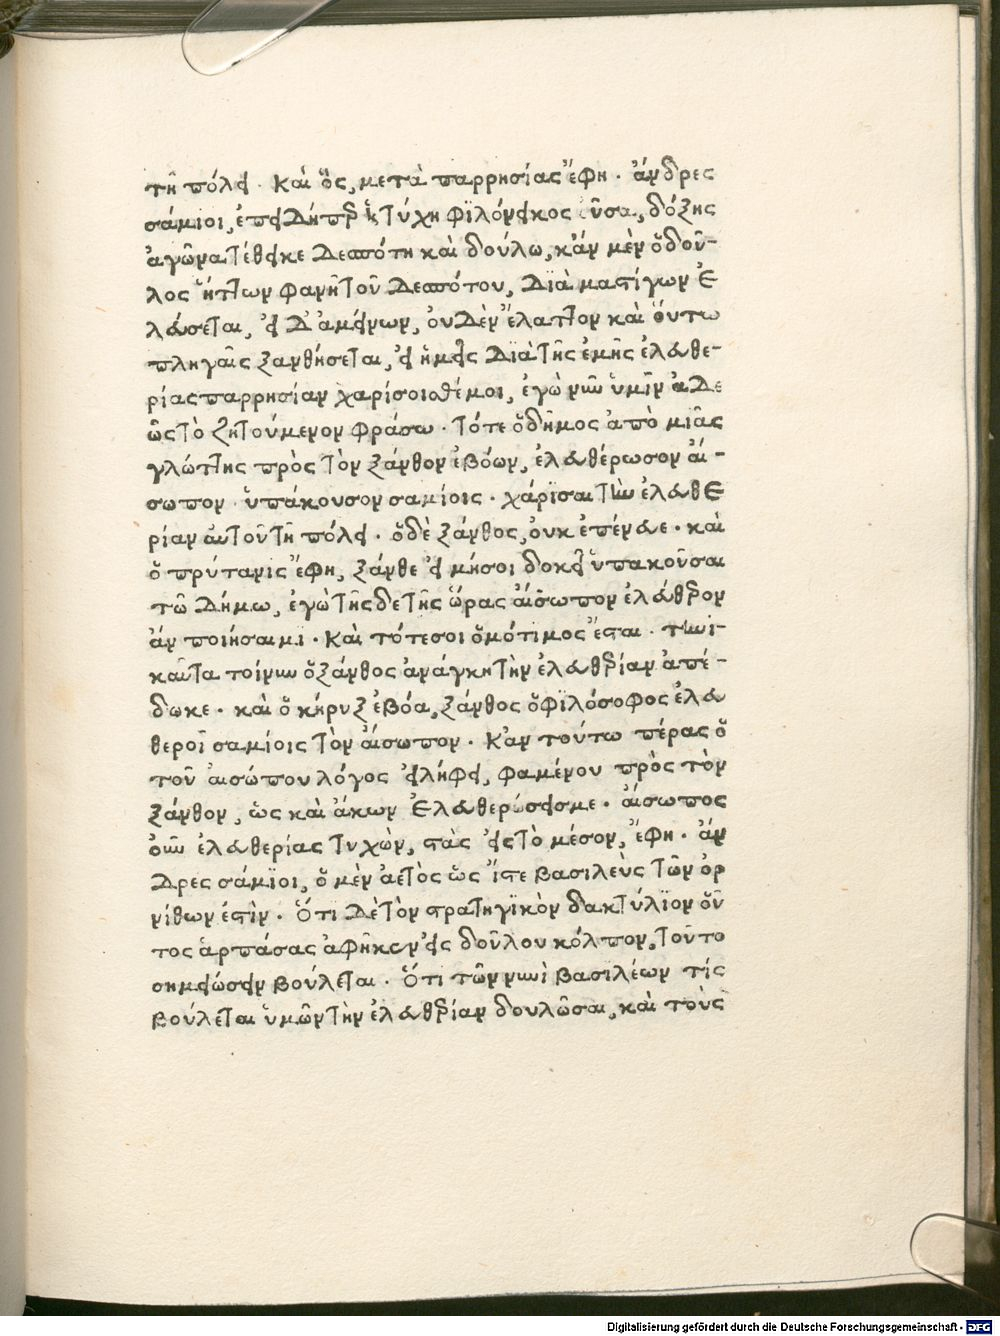 τῆ πόλει. Καὶ ὃς, μετὰ παρρησίας ἔφη. ἄνδρες
σάμιοι, ἐπειδήπερ ἡ τύχη φϊλόνεικος οὖσα, δόξης
ἀγῶνα τέθεικε δεσπότη καὶ δούλω, κἂν μὲν ὁ δοῦ-
λος ἥττων φανῆ τοῦ δεσπότου, δϊὰ μαστίγων ἐ
λεύσεται, εἰ δ' ἀμείνων, οὐδὲν ἔλαττον καὶ οὕτω
πληγαῖς ξανθήσεται, εἰ ἡμεῖς δϊὰ τῆς ἐμῆς ἐλευθε-
ρίας παρρησίαν χαρίσοισθέ μοι, ἐγὼ νῦν ὑμῖν ἀδε
ῶς τὸ ζητούμενον φράσω. τότε ὁ δῆμος ἀπὸ μιᾶς
γλώττης πρὸς τὸν ξάνθον ἐβόων, ἐλευθέρωσον αἴ-
σωπον ὑπάκουσον σαμίοις. χάρϊσαι τὴν ἐλευθε
ρίαν αὐτοῦ τῆ πόλει. ὁ δὲ ξάνθος, οὐκ ἐπένευε. καὶ
ὁ πρύτανϊς ἔφη, ξάνθε εἰ μή σοι δοκεῖ ὑπακοῦσαι
τῶ δήμω, ἐγὼ τῆς δε τῆς ὥρας αἴσωπον ἐλεύθερον
ἂν ποιήσαιμι. Καὶ τότε σοι ὁμότιμος ἔσται. τηνι-
καῦτα τοίνυν ὁ ξάνθος ἀνάγκη τὴν ἐλευθερίαν ἀπέ-
δωκε. καὶ ὁ κήρυξ ἐβόα, ξάνθος ὁ φϊλόσοφος ἐλευ
θεροῖ σαμίοις τὸν αἴσωπον. Κἀν τούτω πέρας ὁ
τοῦ αἰσώπου λόγος εἰλήφει, φαμένου πρὸς τὸν
ξάνθον, ὡς καὶ ἄκων ἐλευθερώσεις με. αἴσωπος
οὖν ἐλευθερίας τυχὼν, στὰς εἰς τὸ μέσον, ἔφη. ἄν
δρες σάμϊοι, ὁ μὲν ἀετὸς ὡς ἴστε βασιλεὺς τῶν ὀρ
νίθων ἐστὶν. Ὅτι δὲ τὸν στρατηγϊκὸν δακτύλϊον οὗ
τος ἁρπάσας ἀφῆκεν εἰς δούλου κόλπον, τοῦτο
σημειώσειν βούλεται. Ὅτι τῶν νυνὶ βασιλέων τίς
βούλεται ὑμῶν τὴν ἐλευθερίαν δουλῶσαι, καὶ τοὺς
Digitalisierung gefördert durch die Deutsche Forschungsgemeinschaft - DFG